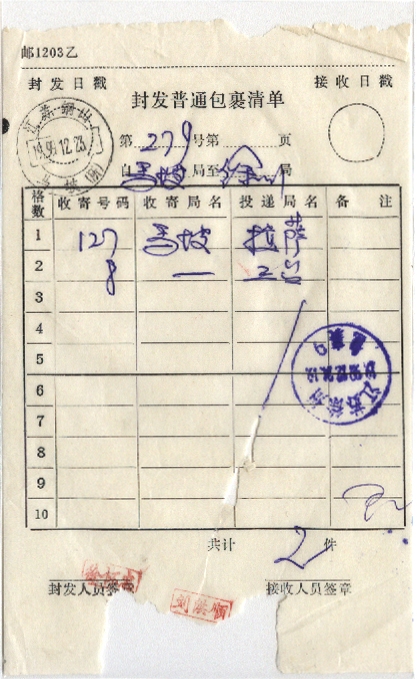 邮1203乙
封发日戳 接收日戳
封发普通包裹清单
江苏铜山
1996.12.23
第279号第 页
自马坡局至徐州局
格数 收寄号码 收寄局名 投递局名 备注
1 127 马坡 拉萨
2 8 一
3
4
5
6
7
8
9
10
共计 2 件
封发人员签章 接收人员签章